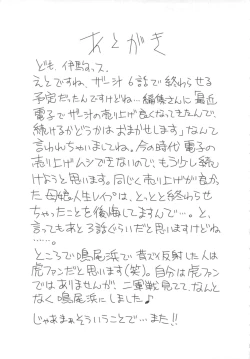 あとがき
ども、伊駒っス。
えとですね、ザー汁6話で終わらせる
予定だったんですけどね…編集さんに「最近
電子でザー汁の売り上げ良くなってきたんで、
続けるかどうかはおまかせします」なんて
言われちゃいましてね。今の時代電子の
売り上げムシできないので、もう少し続け
ようと思います。同じく売り上げが良かっ
た母娘人生レイプは、とっとと終わらせ
ちゃったことを後悔してますんで…。と、
言ってもあと3話くらいだと思いますけどね
……。
ところで鳴尾浜で一番ズバ反射した人は
虎ファンだと思います(笑)。自分は虎ファン
ではありませんが、二軍戦見てて、なんと
なく鳴尾浜にしました♪
じゃあまぁそういうことで…また!!